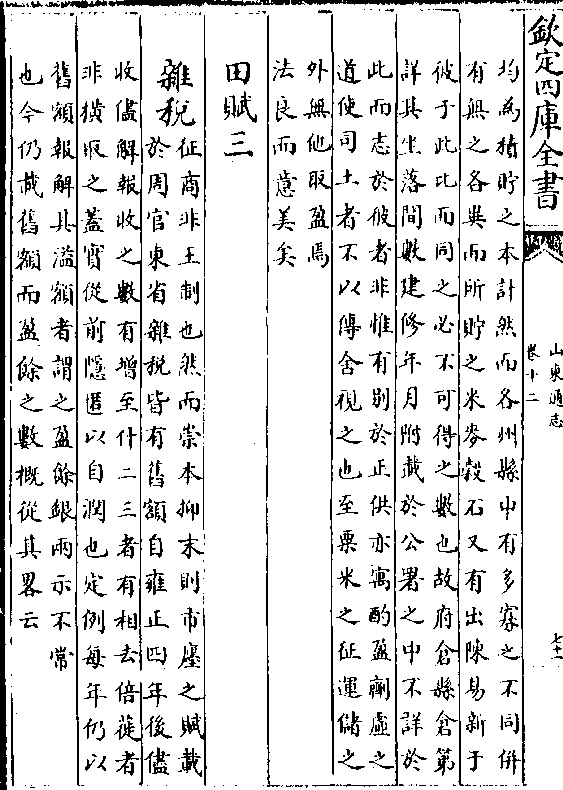 欽定四庫全書
山東通志
卷十二
七十一
均為積貯之本計然而各州縣中有多寡之不同併
有無之各異而所貯之米麥穀石又有出陳易新于
彼于此比而同之必不可得之數也故府倉縣倉第
詳其坐落間數建修年月附載於公署之中不詳於
此而志於彼者非惟有别於正供亦寓酌盈劑虛之
道使司土者不以傳舍視之也至粟米之征運儲之
外無他取盈焉
法良而意美矣
田賦三
雜稅
征商非王制也然而崇本抑末則市廛之賦載
於周官東省雜稅皆有舊額自雍正四年後儘
收儘解報收之數有增至什二三者有相去倍蓰者
非橫取之蓋實從前隱匿以自潤也定例每年仍以
舊額報解其溢額者謂之盈餘銀兩示不常
也今仍載舊額而盈餘之數概從其畧云